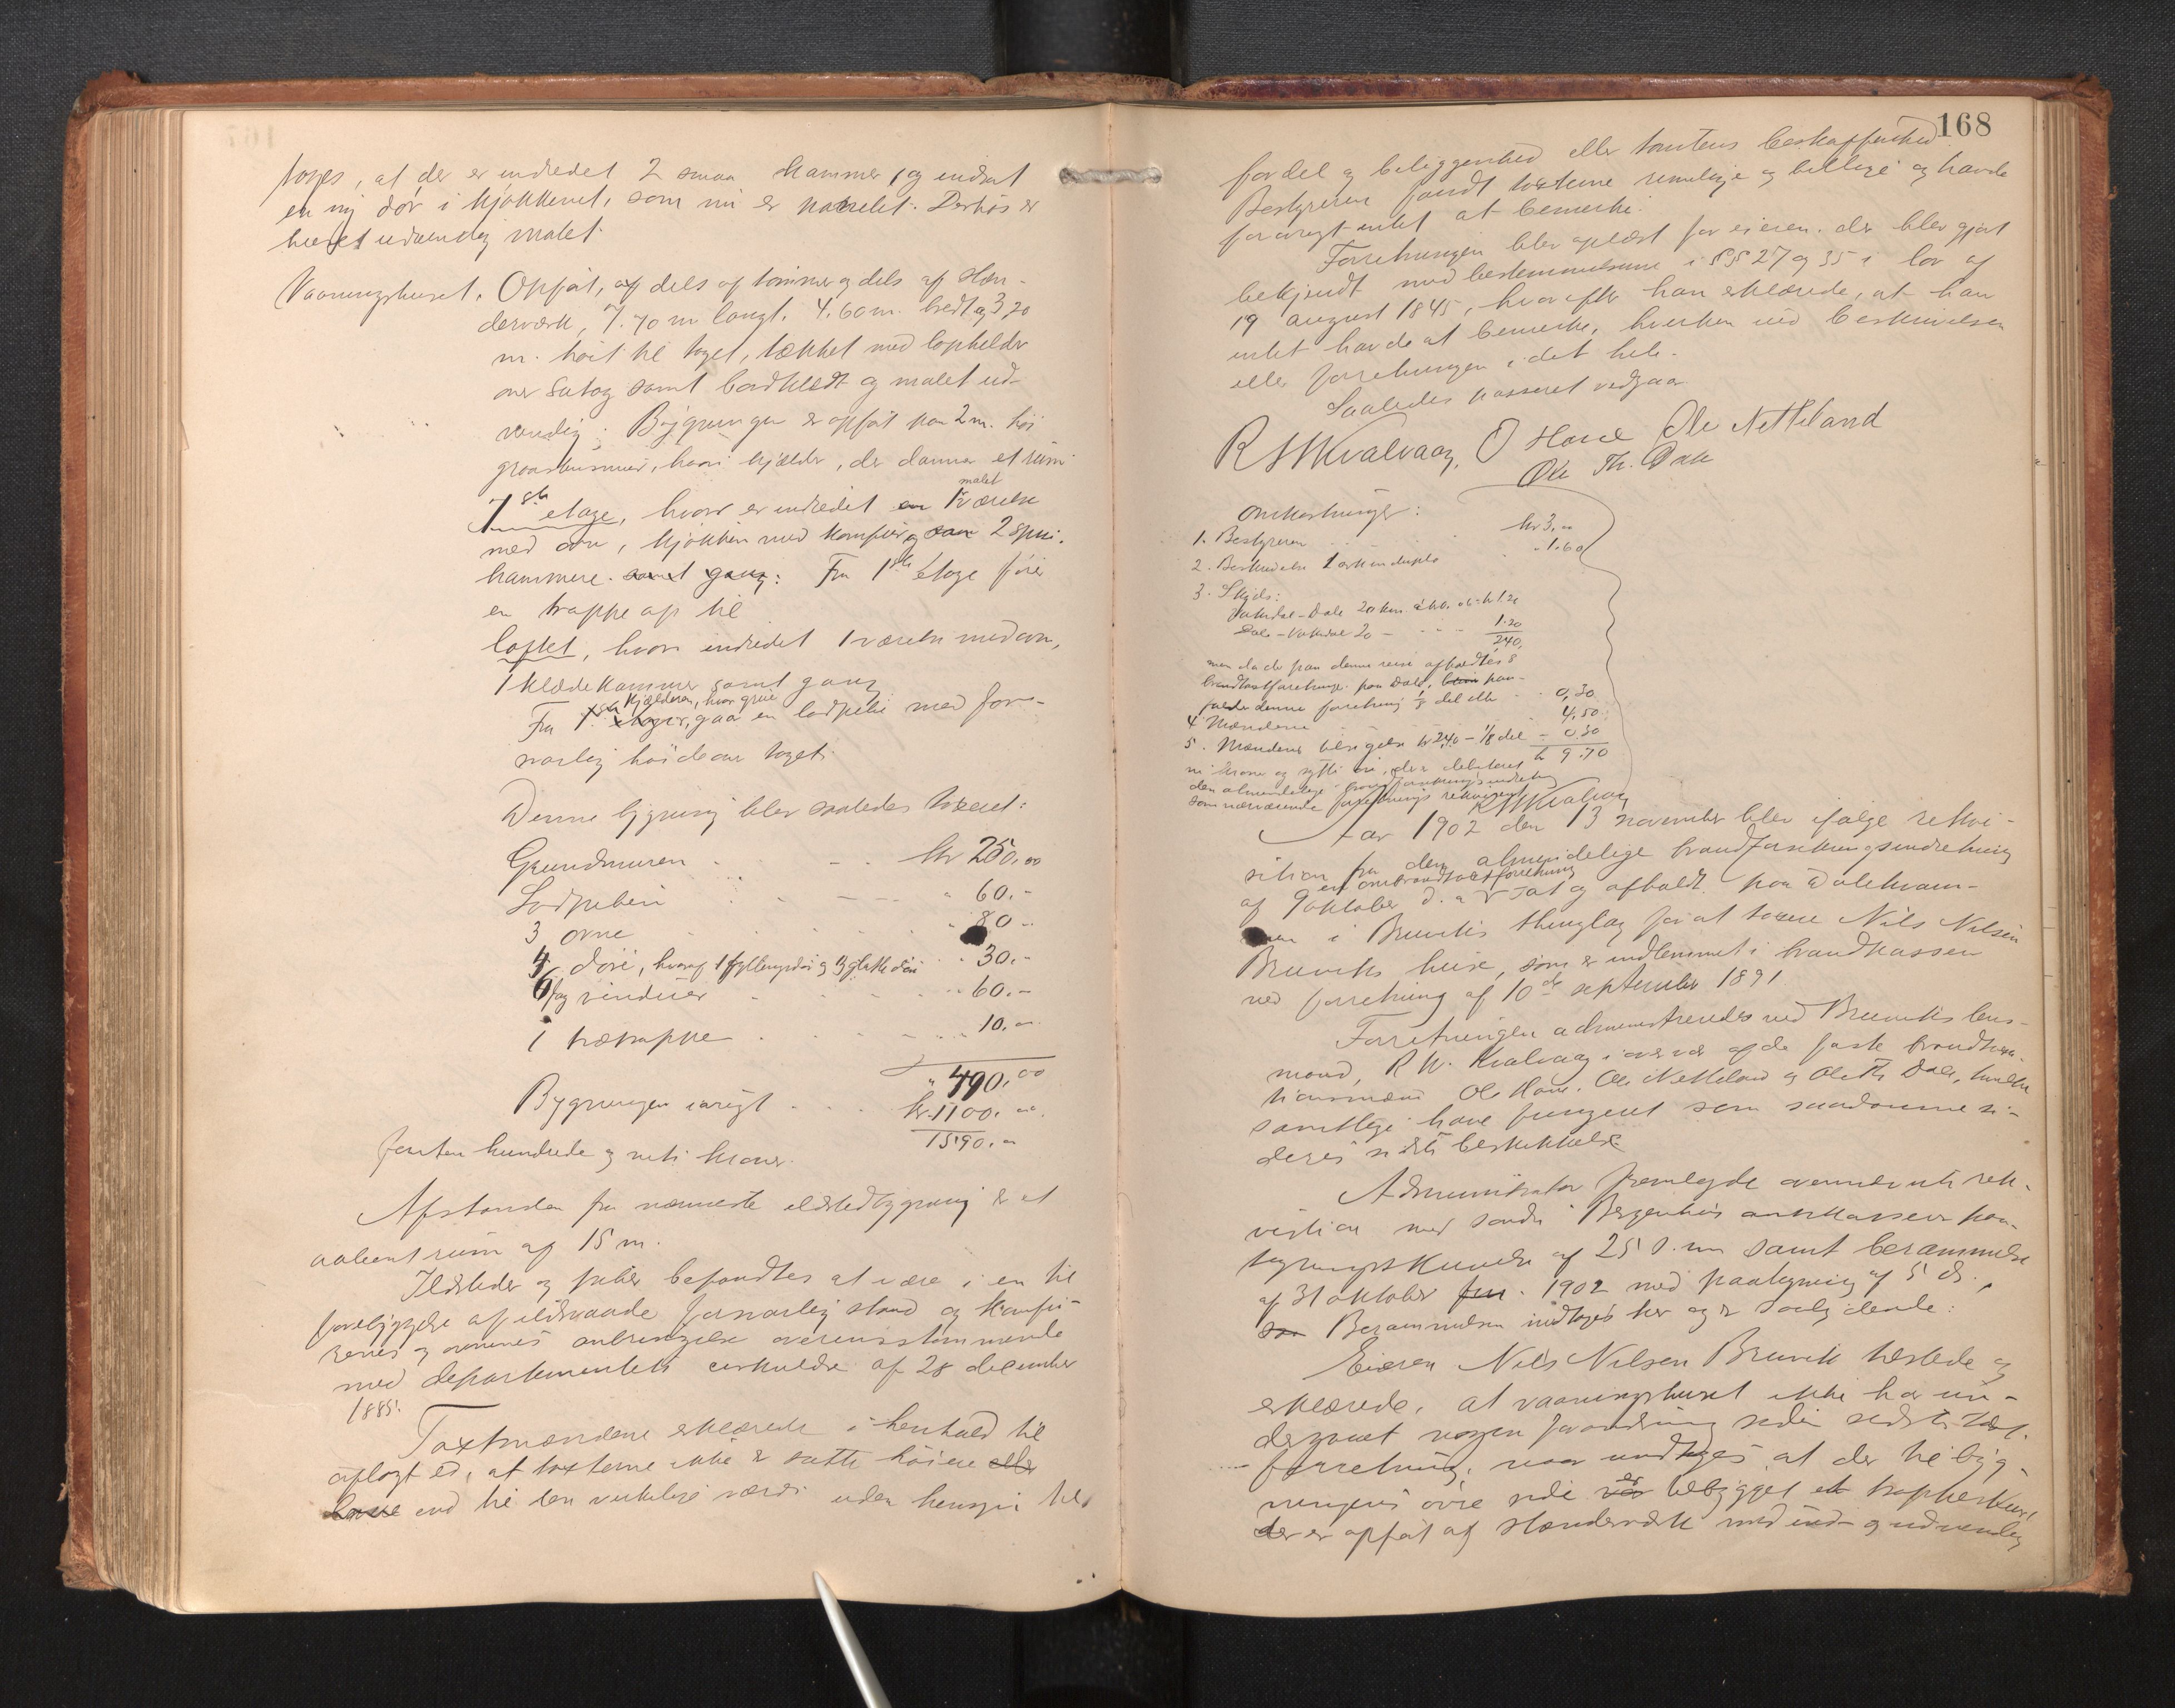 tages, at der er indredet 2 smaa kammer, og indsat
en ny dør i kjøkkenet, som nu er panelet. Derhos er
huset udvendig malet.
Vaaningshuset. Opført, af dels af tømmer og dels af Stæn-
derværk, 7.70 m langt. 4.60 m. bredt og 3,20
m. høit til taget, tækket med
over sutag samt bordklædt og malet ud-
vendig. Bygningen er opført paa 2 m. høi
graastensmur, hvori kjælder, der danner et rum
malet
1ste etage, hvor er indredet en 1 værelse
med ovn, kjøkken med komfur og samt 2 spis-
kammere. samt gang: Fra 1ste etage fører
en trappe op til
loftet, hvori indredet 1 værelse med ovn,
1 klædekammer samt gang
kjælderen, hvor grue
Fra 1ste etager, gaar en lodpibe med for-
svarlig høide over taget.
Denne bygning blev saaledes taxeret:
Grundmuren kr 250,00
Lodpiben " 60.-
3 ovne " 80 -
4 døre, hvoraf 1 fyllingsdør og 3 glatte døre " 30.-
6 fag vinduer " 60.-
1 trætrappe " 10.-
" 490.00
Bygningen iøvrigt kr. 1100.
1590.
femten hundrede og niti kroner.
Afstanden fra nærmeste ildstedbygning er et
aabent rum af 15 m.
Ildsteder og piber befandtes at være i en til
forebyggelse af ildsvaade forsvarlig stand og komfu-
rernes og ovnenes anbringelse overensstemmende
med departementets cirkulære af 28 december
1885.
Taxtmændene erklærede i henhold til
aflagt ed, at taxterne ikke er satte høiere eller
lavere end til den virkelige værdi uden hensyn til
168
fordel og beliggenhed eller tomtens beskaffenhed
Bestyreren fandt taxterne rimelige og billige og havde
forøvrigt intet at bemerke.
Forretningen blev oplæst for eieren. der blev gjort
bekjendt med bestemmelserne i §§ 27 og 35 i lov af
19 august 1845, hvorefter han erklærede, at han
intet havde at bemerke, hverken ved beskrivelsen
eller forretningen i det hele.
Saaledes passeret vedgaar
R W Kvalvaag, O Horve Ole Nettland
Ole Th. Dale
Omkostninger:
1. Bestyreren kr 3.
2. Beskrivelse 1 ark in duplo " 1.60
3. Skyds:
Vaksdal - Dale 20 km. kr 1.20
Dale - Vaksdal 20 - 1.20
2.40
men da der paa denne reise afholdtes 8
brandtaxtforretninger paa Dale, paa-
falder denne forretning 1/8 del eller 0,30
4. Mændene 4,50
5. Mændenes tilsigelse kr 2,40 - 1/8 del = 0.30
kr 9.70
ni kroner og sytti øre, der debiteres
den almindelige brandforsikringsindretning
som nærværende forretnings rekvirent
R W Kvalvaag
Aar 1902 den 13 november blev ifølge rekvi-
sition fra den almindelige brandforsikringsindretning
en ombrandtaxtforretning
af 9 oktober d. a. sat og afholdt paa Dalekvam-
i Bruviks thinglag for at taxere Nils Nilsen
Bruviks huse, som er indlemmet i brandkassen
ved forretning af 10de september 1891
Forretningen administreredes ved Bruviks lens-
mand, R W. Kvalvaag i overvær af de faste brandtaxa-
tionsmænd Ole Horve. Ole Nettland og Ole Th Dale, hvilke
samtlige have fungeret som saadanne si-
den sidste beskikkelse
Administrator fremlagde ovennævnte rek-
visition med søndre Bergenhus amtskasserer paa-
tegningskrivelse af 25 s. m samt berammelse
af 31 oktober 1902 med paategning af 5 ds.,
Berammelsen indtages her og er saalydende:
Eieren Nils Nilsen Bruvik tilstede og
erklærede, at vaaningshuset ikke har un-
dergaaet nogen forandring siden sidste taxt-
forretning, naar undtages, at der til byg-
er
ningens øvre side var tilbygget et trappeskur,
der er opført af stænderværk med ind- og udvendig